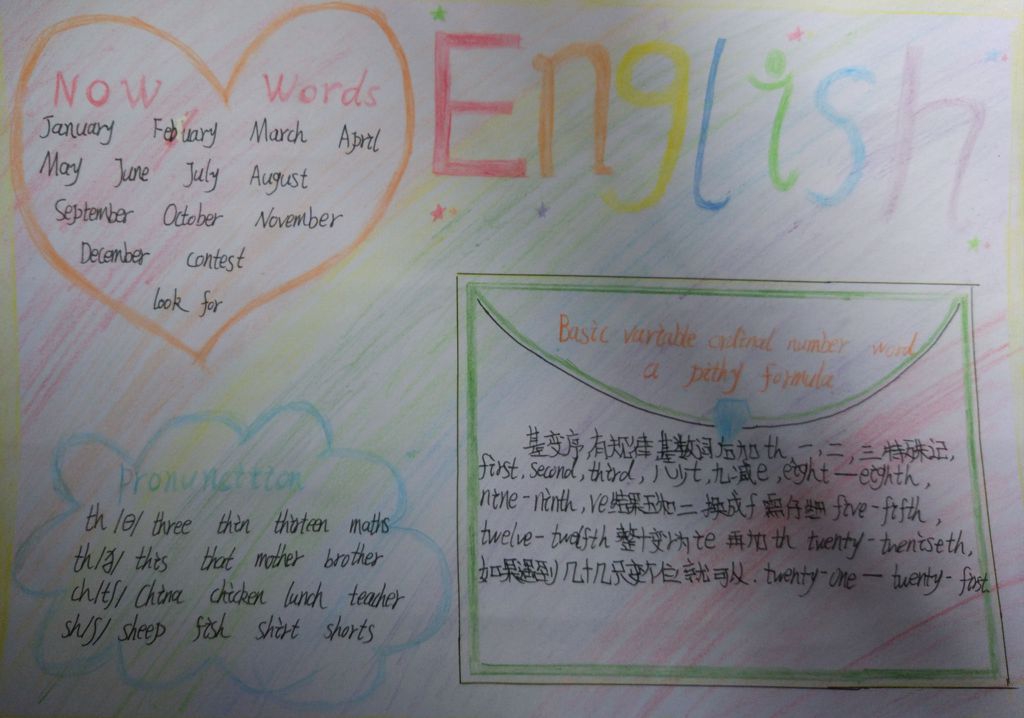 English
Now Words
January Febuary March April
May June July August
September October November
December contest
look for
Pronunction
th /θ/ three thin thirteen maths
th/ð/ this that mother brother
ch/tʃ/ China chicken lunch teacher
sh/ʃ/ sheep fish shirt shorts
Basic vartable ordinal number word
a pithy formula
基变序有规律 基数词后加 th 一,二,三特殊记,
first, second, third, 八少t,九减e, eight—eighth,
nine-ninth, ve结果五和二 换成f 需仔细 five-fifth,
twelve-twelfth 整十变y为ie 再加 th twenty-twentieth,
如果遇到几十几只变个位就可以. twenty-one — twenty-first